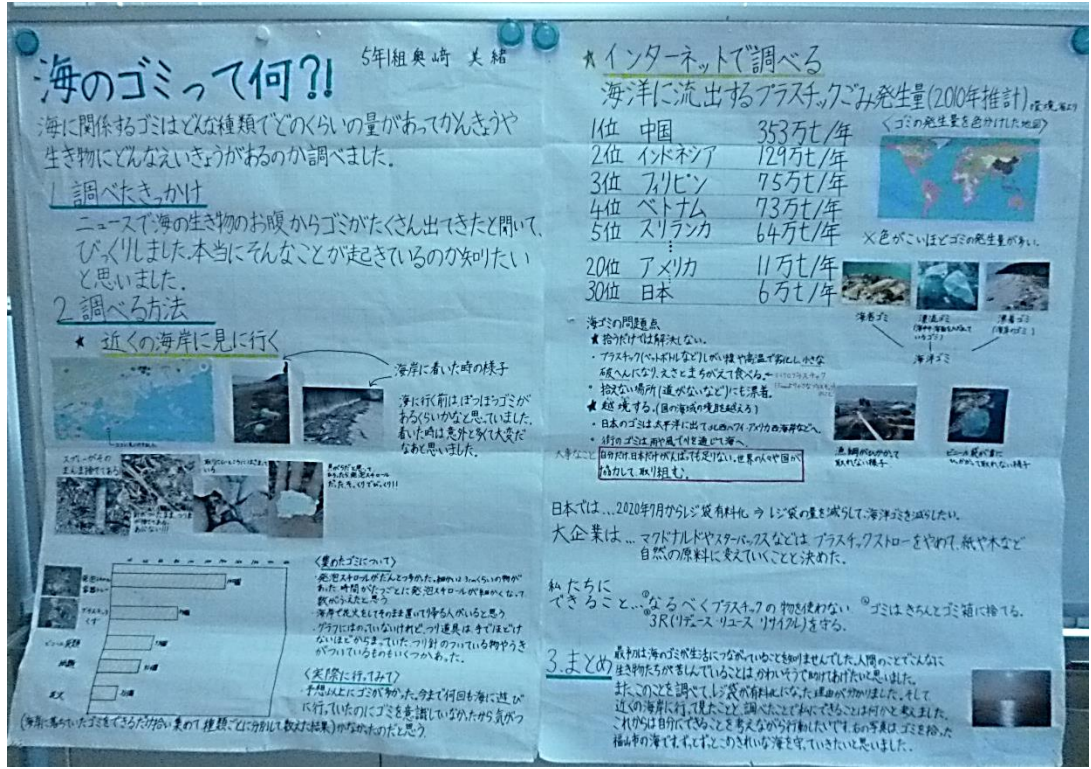 海のゴミって何?!
5年1組 奥﨑 美緒
海に関係するゴミはどんな種類でどのくらいの量があってかんきょうや
生き物にどんなえいきょうがあるのか調べました.
1.調べたきっかけ
ニュースで海の生き物のお腹からゴミがたくさん出てきたと聞いて、
びっくりしました.本当にそんなことが起きているのか知りたい
と思いました.
2.調べる方法
★ 近くの海岸に見に行く
海岸に着いた時の様子
海に行く前はぽつぽつゴミが
あるくらいかなと思っていました.
着いた時は意外と多くて大変だ
なあと思いました.
スプレーがその
まんま捨ててある
<集めたゴミについて>
・発泡スチロールがだんとつ多かった.
あった.時間がたつごとに発泡スチロールが細かくなって
数がふえたと思う
・海岸で花火をしてそのまま置いて帰る人がいると思う
・グラフにはのっていないけれど、つり道具は、手でほどけ
ないほどからまっていた.つり針のついている物やうき
がついているものもいくつかあった.
<実際に行ってみて>
・予想以上にゴミが多かった.今まで何回も海に遊び
に行っていたのにゴミを意識していなかったから気がつ
かなかったのだと思う.
(海岸に落ちていたゴミをできるだけ拾い集めて種類ごとに分別して数えた結果)
★ インターネットで調べる
海洋に流出するプラスチックごみ発生量(2010年推計)環境省より
1位 中国 353万t/年
2位 インドネシア 129万t/年
3位 フィリピン 75万t/年
4位 ベトナム 73万t/年
5位 スリランカ 64万t/年
⋮
20位 アメリカ 11万t/年
30位 日本 6万t/年
<ゴミの発生量を色分けした地図>
※色がこいほどゴミの発生量が多い.
海底ゴミ
漂流ゴミ
漂着ゴミ
海洋ゴミ
海ゴミの問題点
★ 拾うだけでは解決しない.
・プラスチック(ペットボトルなど)しがい線や高温で劣化し小さな
破へんになり、えさとまちがえて食べる.
・拾えない場所(道がないなど)にも漂着.
★ 越境する.(国の海域の境目を越える)
・日本のゴミは太平洋に出て北西ハワイ・アメリカ西海岸などへ.
・街のゴミは雨や風で川を通じて海へ.
大事なこと
自分だけ、日本だけがんばっても足りない.世界の人々や国が
協力して、取り組む.
漁網がひっかかって
取れない様子
ビニール袋が首に
ひっかかって取れない様子
日本では…2020年7月からレジ袋有料化 ⇒ レジ袋の量を減らして、海洋ゴミを減らしたい.
大企業は… マクドナルドやスターバックスなどは プラスチックストローをやめて、紙や木など
自然の原料に変えていくことと決めた.
私たちに
できること… ①なるべくプラスチックの物を使わない ②ゴミはきちんとゴミ箱に捨てる.
③3R(リデュース・リユース・リサイクル)を守る.
3.まとめ
最初は海のゴミが生活につながっていることを知りませんでした.人間のことでこんなに
生き物たちが苦しんでいることはかわいそうで助けてあげたいと思いました.
また、このことを調べて、レジ袋が有料化になった理由が分かりました.そして
近くの海岸に行って見たことと調べたことで私にできることは何かと考えました.
これからは自分にできることを考えながら行動したいです.右の写真は、ゴミを拾った
福山市の海です.ずっとずっとこのきれいな海を守っていきたいと思いました.